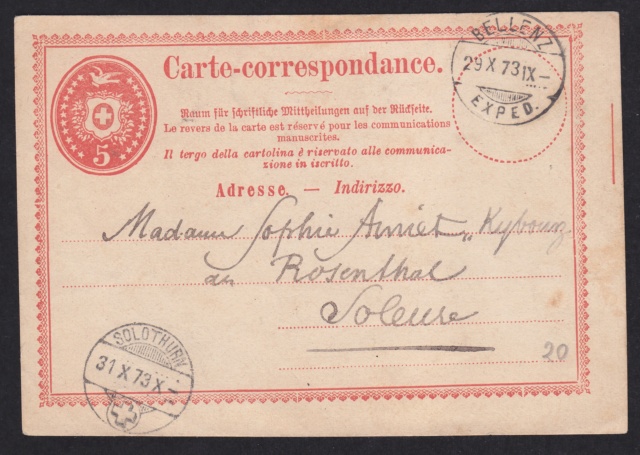 Carte-correspondance.
BELLENZ
29 X 73 IX –
EXPED.
5
Raum für schriftliche Mittheilungen auf der Rückseite.
Le revers de la carte est réservé pour les communications
manuscrites.
Il tergo della cartolina è riservato alle communica-
zione in iscritto.
Adresse. — Indirizzo.
Madame Sophie Amiet„ Kybourz
au Rosenthal
Soleure
20
SOLOTHURN
31 X 73 X –